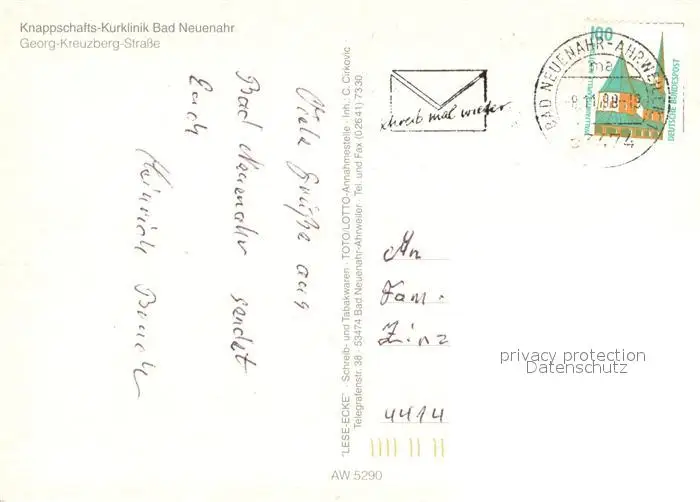 Knappschafts-Kurklinik Bad Neuenahr
Georg-Kreuzberg-Straße
Viele Grüße aus
Bad Neuenahr sendet
Euch
Heinrich
"LESE-ECKE" · Schreib- und Tabakwaren · TOTO/LOTTO-Annahmestelle · Inh. C. Cirkovic
Telegrafenstr. 38 · 53474 Bad Neuenahr-Ahrweiler · Tel. und Fax (02641) 7330
schreib mal wieder
BAD NEUENAHR-AHRWEILER
ma
53474
100
DEUTSCHE BUNDESPOST
An
Fam.
Zinz
4414
privacy protection
Datenschutz
AW 5290